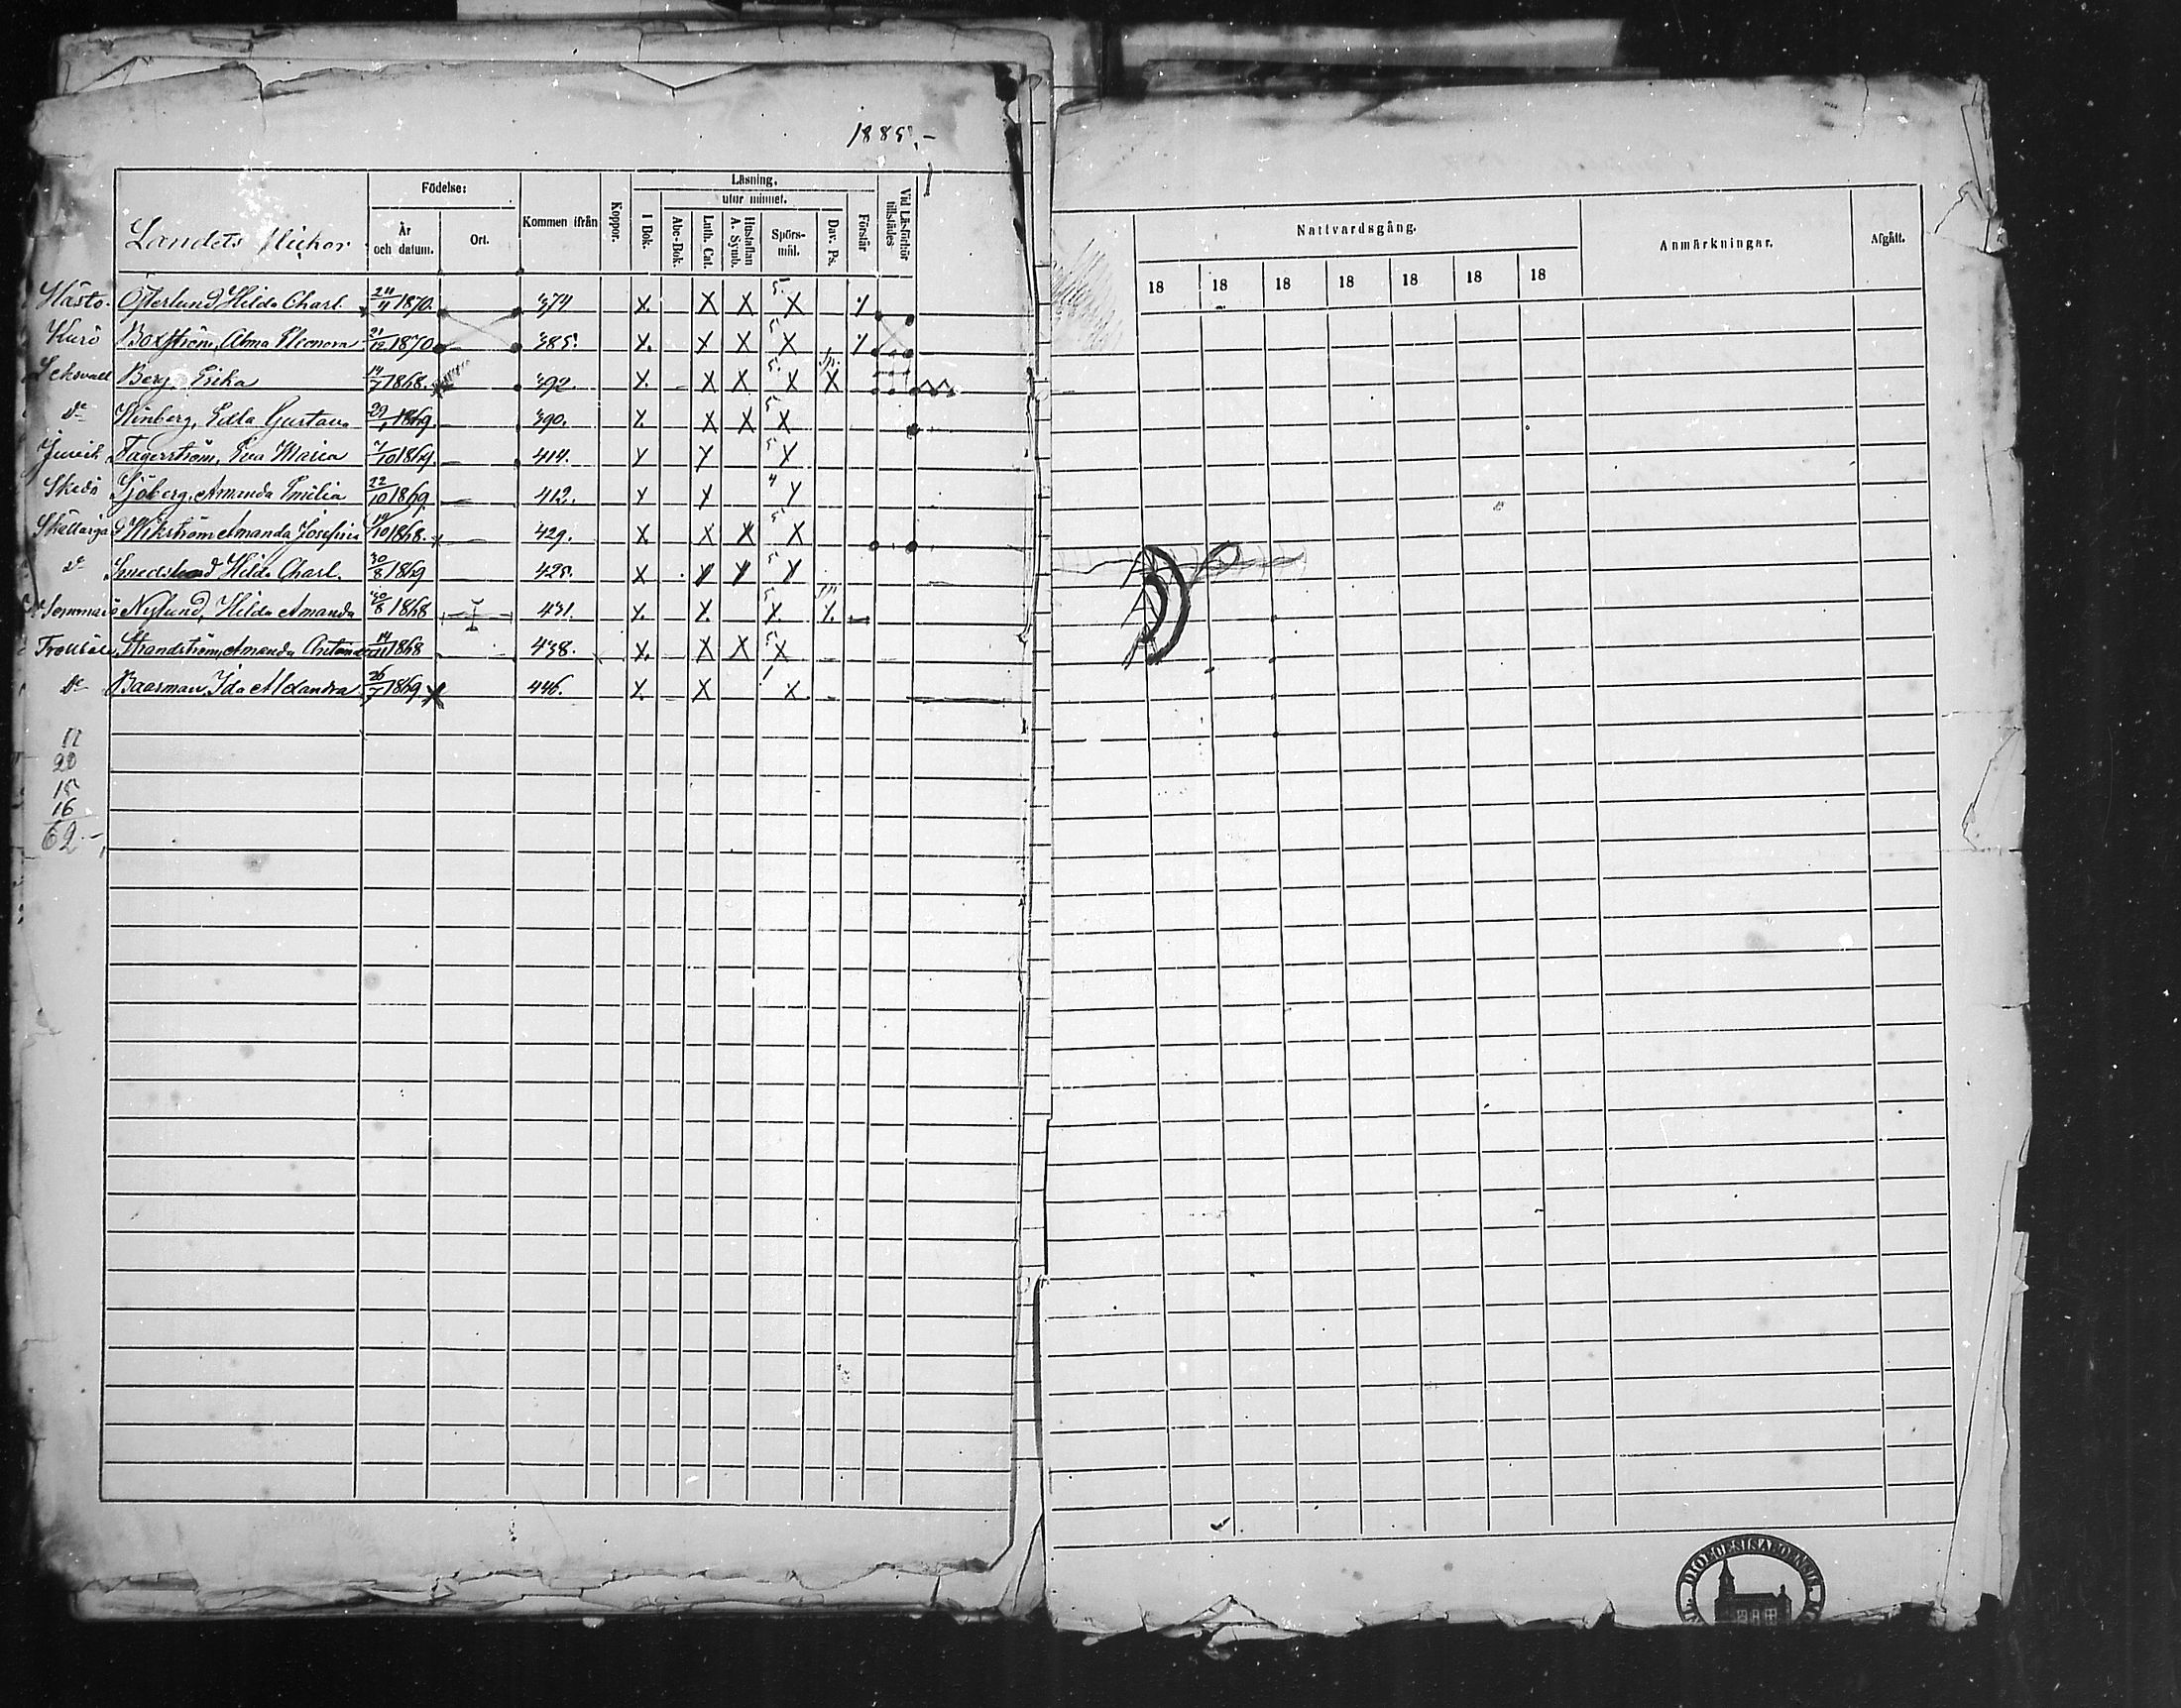 1885.-
Födelse:
Läsning.
utur minnet.
Landets flickor
År och datum.
Ort.
Kommen ifrån
Koppor.
I Bok.
Abc-Bok.
Luth. Cat.
Hustaflan A. Symb.
Spörs-mål.
Dav. Ps.
Förstår
Vid Läsförhör tillstädes
Hästö. Österlund, Hilda Charl. 24/4 1870. 374 X. X X 5 X
Kurö Boxström, Alma Eleonora 21/12 1870 385. X. X X 5 X
Berg, Erika 14/7 1868. 392. X. X X 5 X X
Do Winberg, Edla Gustava 29/1 1869. 390. X. X X 5 X
Fagerström, Eva Maria 7/10 1869. 414. X X 5 X
Skedö Sjöberg, Amanda Emilia 22/10 1869 412. X X 4 X
Wikström Amanda Josefina 19/10 1868. 429. X X X 5 X
Do Hilda Charl. 30/8 1869 425. X X X 5 X
Nylund, Hilda Amanda 30/8 1868 431. X. X. 5 X. X.
Trollböle Strandström, Amanda 1868 438. X. X X 5 X
Do Baarman, Ida Alexandra 26/7 1869 X 446. X X 1 X
12
20
15
16
62.-
Nattvardsgång.
Anmärkningar.
Afgått.
18 18 18 18 18 18 18